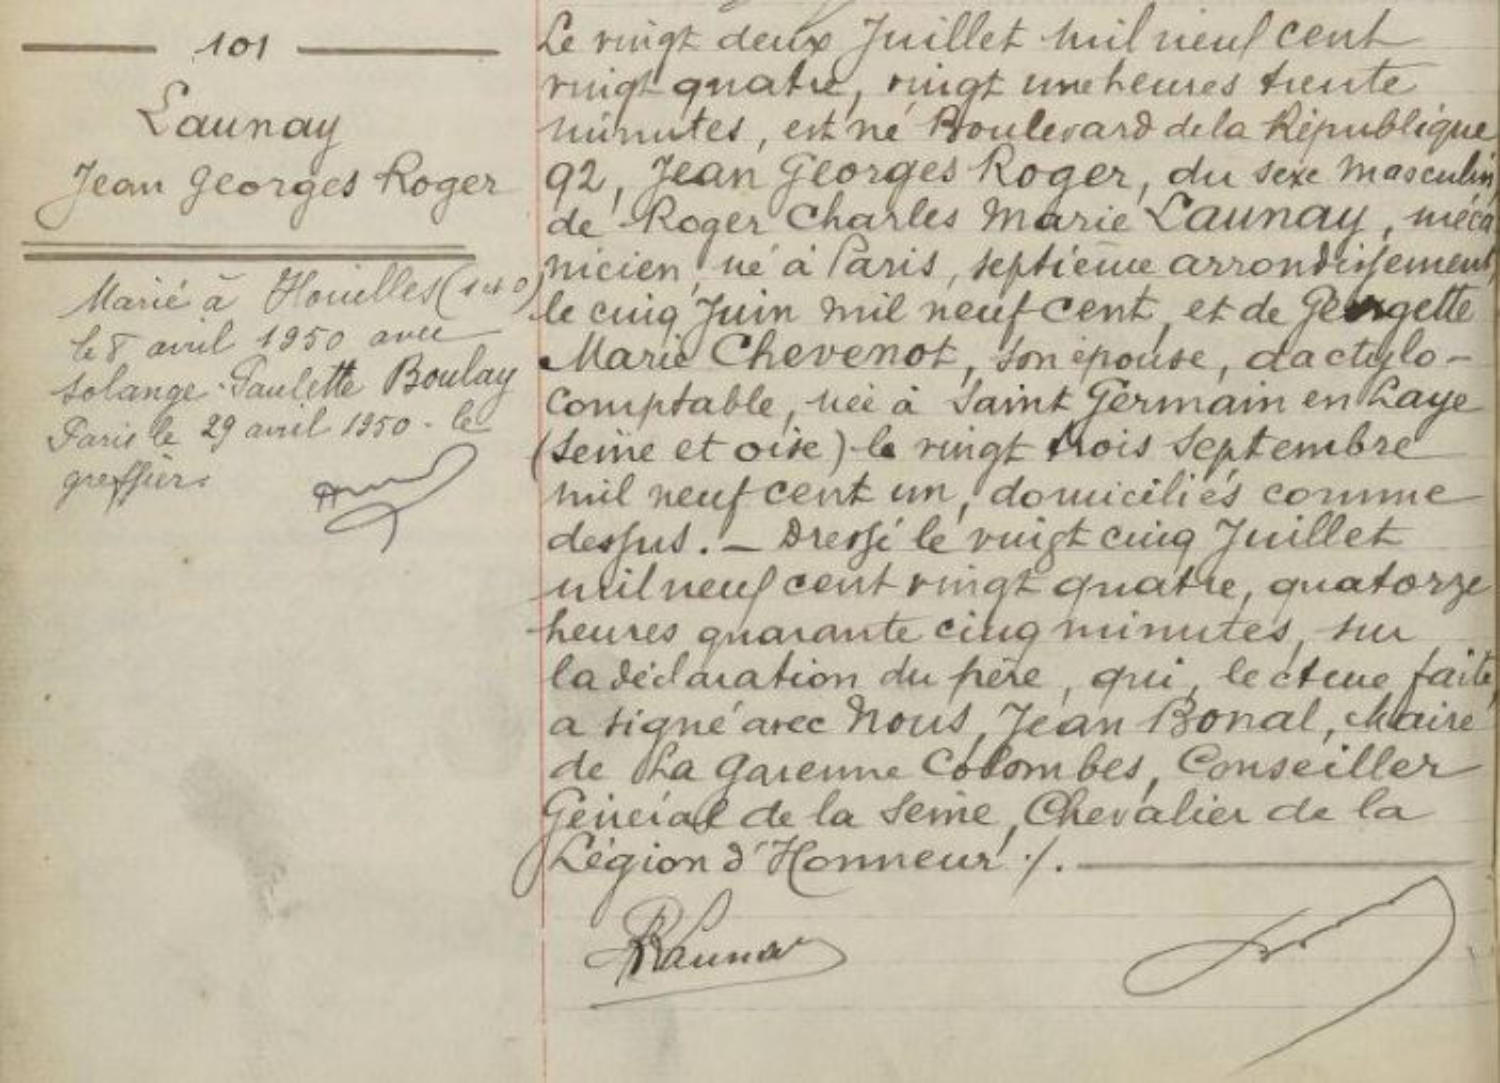 101
Launay
Jean Georges Roger
Marié à Houilles (S et O)
le 8 avril 1950 avec
Solange Paulette Boulay
Paris le 29 avril 1950 - le
greffier.
Le vingt deux Juillet mil neuf cent
vingt quatre, vingt une heures trente
minutes, est né Boulevard de la République
92, Jean Georges Roger, du sexe masculin,
de Roger Charles Marie Launay, méca
nicien, né à Paris, septième arrondissement,
le cinq Juin mil neuf cent, et de Georgette
Marie Chevenot, son épouse, dactylo-
comptable, née à Saint Germain en Laye
(Seine et Oise) le vingt trois Septembre
mil neuf cent un, domiciliés comme
dessus. — Dressé le vingt cinq Juillet
mil neuf cent vingt quatre, quatorze
heures quarante cinq minutes, sur
la déclaration du père, qui, lecture faite,
a signé avec Nous, Jean Bonal, Maire
de La Garenne Colombes, Conseiller
Général de la Seine, Chevalier de la
Légion d'Honneur ./.
RLaunay